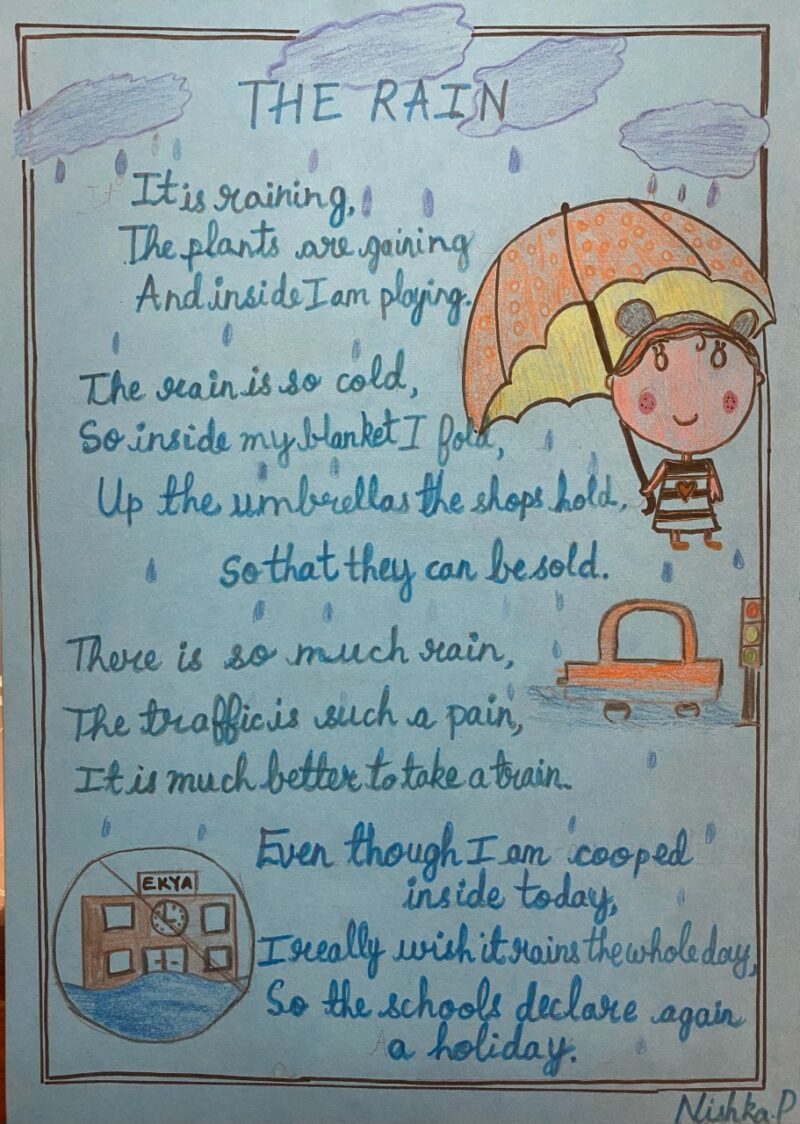 THE RAIN
It is raining,
The plants are gaining
And inside I am playing.
The rain is so cold,
So inside my blanket I fold,
Up the umbrellas the shops hold,
So that they can be sold.
There is so much rain,
The traffic is such a pain,
It is much better to take a train.
Even though I am cooped
inside today,
I really wish it rains the whole day,
So the schools declare again
a holiday.
EKYA
Nishka.P